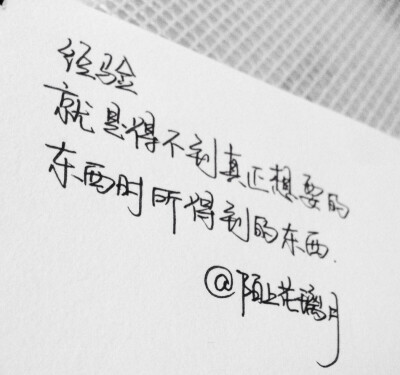 经验
就是得不到真正想要的
东西时所得到的东西.
@陌上花璃月